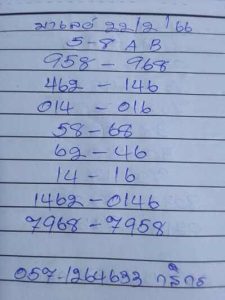 มาเลย์ 22/2/66
5-8 A B
958-968
462-146
014-016
58-68
62-46
14-16
1462-0146
7968-7958
057-1264633 กสิกร